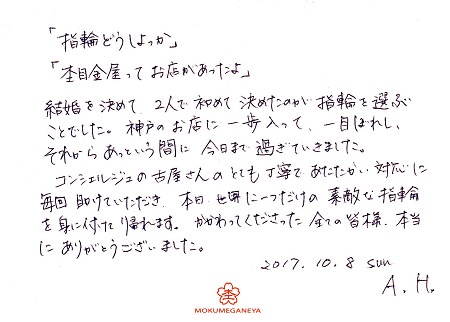 「指輪どうしよっか」
「杢目金屋って お店があったよ」
結婚を決めて、2人で初めて 決めたのが 指輪を選ぶ
ことでした。神戸のお店に 一歩入って、一目ぼれし、
それから あっという間に 今日まで 過ぎていきました。
コンシェルジュの古屋さんの とても 丁寧で あたたかい 対応に
毎回 助けていただき、本日 世界に一つだけの 素敵な 指輪
を 身に付けて 帰れます。かかわってくださった 全ての皆様、本当
に ありがとうございました。
2017. 10. 8 sun
A. H.
MOKUMEGANEYA